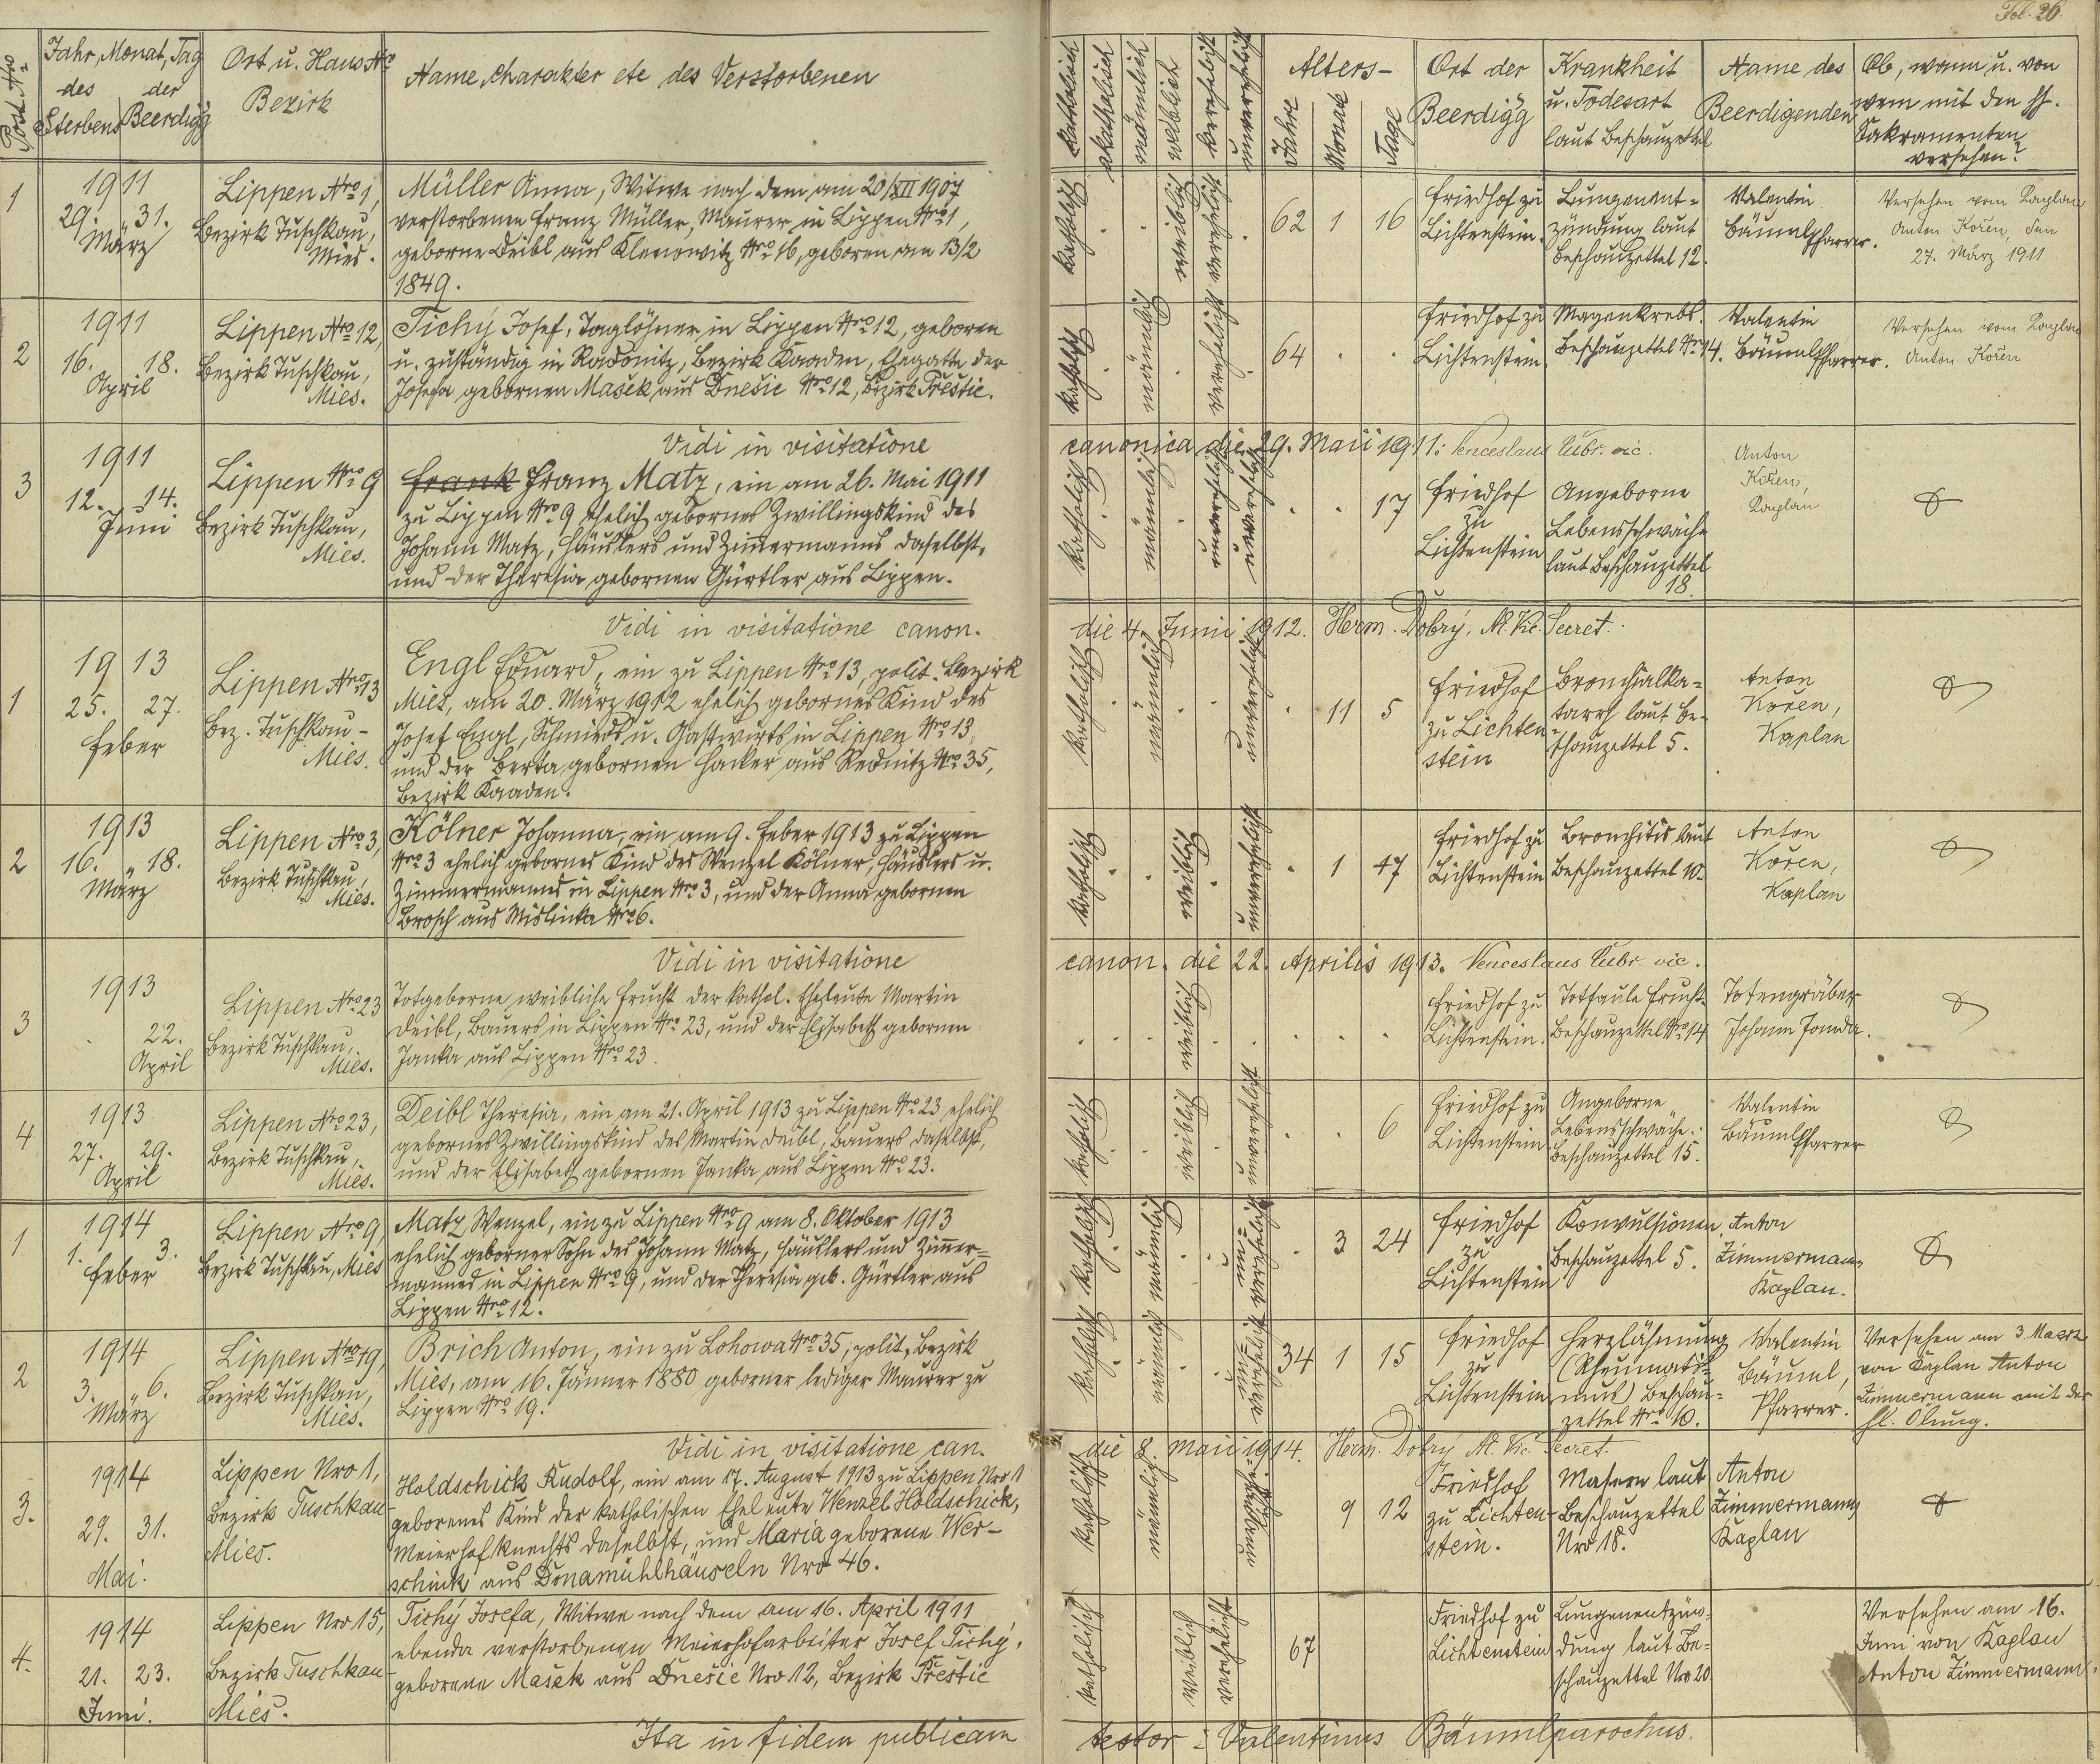 Fol. 26.
Post Nro
Jahr, Monat, Tag
des Sterbens
der Beerdigg
Ort u. Haus Nro
Bezirk
Name, Charakter etc des Verstorbenen
katholisch
akatholisch
männlich
weiblich
verehelicht
unverehelicht
Alters-
Jahre
Monate
Tage
Ort der
Beerdigg
Krankheit
u. Todesart
laut Beschauzettel
Name des
Beerdigenden
Ob, wann u. von
wem mit den hl.
Sakramenten
versehen?
1
1911
29. 31.
März
Lippen Nro 1,
Bezirk Tuschkau,
Mies.
Müller Anna, Witwe nach dem am 20/XII 1907
verstorbenen Franz Müller, Maurer in Lippen Nro 1,
geborne Deibl aus Klenowitz Nro 16, geboren am 13/2
1849.
katholisch
weiblich
verehelicht
62 1 16
Friedhof zu
Lichtenstein.
Lungenent=
zündung laut
Beschauzettel 12.
Valentin
Bäuml Pfarrer.
Versehen vom Kaplan
Anton Kořen, den
27. März 1911
2
1911
16. 18.
April
Lippen Nro 12,
Bezirk Tuschkau,
Mies.
Tichý Josef, Taglöhner in Lippen Nro 12, geboren
u. zuständig in Radonitz, Bezirk Kaaden, Ehegatte der
Josefa gebornen Mašek aus Dnešic Nro 12, Bezirk Přeštic.
katholisch
männlich
verehelicht
64
Friedhof zu
Lichtenstein.
Magenkrebs.
Beschauzettel Nro 14.
Valentin
Bäuml Pfarrer.
Versehen vom Kaplan
Anton Kořen
Vidi in visitatione canonica die 29. Maii 1911: Venceslaus vic.
3
1911
12. 14.
Juni
Lippen Nro 9
Bezirk Tuschkau,
Mies.
Frank Franz Matz, ein am 26. Mai 1911
zu Lippen Nro 9 ehelich gebornes Zwillingskind des
Johann Matz, Häuslers und Zimmermanns daselbst,
und der Theresia gebornen Gürtler aus Lippen.
katholisch
männlich
unverehelicht
unverehelicht
17
Friedhof
zu
Lichtenstein
Angeborne
Lebensschwäche
laut Beschauzettel
18.
Anton
Kořen,
Kaplan
Vidi in visitatione canon. die 4. Junii 1912. Herm. Dobrý, Secret.
1
1913
25. 27.
Feber
Lippen Nro 13
Bez. Tuschkau-
Mies.
Engl Eduard, ein zu Lippen Nro 13, polit. Bezirk
Mies, am 20. März 1912 ehelich gebornes Kind des
Josef Engl, Schmieds u. Gastwirts in Lippen Nro 13,
und der Berta gebornen Hacker aus Rednitz Nro 35,
Bezirk Kaaden.
katholisch
männlich
unverehelicht
11 5
Friedhof
zu Lichten
stein
Bronchialka=
tarrh laut Be-
schauzettel 5.
Anton
Kořen,
Kaplan
2
1913
16. 18.
März
Lippen Nro 3,
Bezirk Tuschkau,
Mies.
Kölner Johanna, ein am 9. Feber 1913 zu Lippen
Nro 3 ehelich gebornes Kind des Wenzel Kölner, Häuslers u.
Zimmermanns in Lippen Nro 3, und der Anna gebornen
Brosch aus Mislinka Nro 6.
katholisch
weiblich
unverehelicht
1 47
Friedhof zu
Lichtenstein
Bronchitis laut
Beschauzettel 10.
Anton
Kořen,
Kaplan
Vidi in visitatione canon. die 22. Aprilis 1913. Venceslaus vic.
3
1913
22.
April
Lippen Nro 23
Bezirk Tuschkau,
Mies.
Totgeborne weibliche Frucht der kathol. Eheleute Martin
Deibl, Bauers in Lippen Nro 23, und der Elisabeth gebornen
Janka aus Lippen Nro 23.
weiblich
Friedhof zu
Lichtenstein.
Totfaule Frucht
Beschauzettel Nro 14
Totengräber
Johann
4
1913
27. 29.
April
Lippen Nro 23,
Bezirk Tuschkau,
Mies.
Deibl Theresia, ein am 21. April 1913 zu Lippen Nro 23 ehelich
gebornes Zwillingskind des Martin Deibl, Bauers daselbst,
und der Elisabeth gebornen Janka aus Lippen Nro 23.
katholisch
weiblich
unverehelicht
6
Friedhof zu
Lichtenstein
Angeborne
Lebensschwäche.
Beschauzettel 15.
Valentin
Bäuml Pfarrer
1
1914
1. 3.
Feber
Lippen Nro 9,
Bezirk Tuschkau, Mies
Matz Wenzel, ein zu Lippen Nro 9 am 8. Oktober 1913
ehelich geborner Sohn des Johann Matz, Häuslers und Zimmer=
mannes in Lippen Nro 9, und der Theresia geb. Gürtler aus
Lippen Nro 12.
katholisch
männlich
un=
verehelicht
3 24
Friedhof
zu
Lichtenstein
Konvulsionen
Beschauzettel 5.
Anton
Zimmermann
Kaplan.
2
1914
3. 6.
März
Lippen Nro 19,
Bezirk Tuschkau,
Mies.
Brich Anton, ein zu Lohowa Nro 35, polit. Bezirk
Mies, am 16. Jänner 1880 geborner lediger Maurer zu
Lippen Nro 19.
katholisch
männlich
un=
verehelicht
34 1 15
Friedhof
zu
Lichtenstein
Herzlähmung
(Rheumatis=
mus) Beschau=
zettel Nro 10.
Valentin
Bäuml,
Pfarrer.
Versehen am 3. Maerz
von Kaplan Anton
Zimmermann mit der
hl. Ölung.
Vidi in visitatione can. die 8. Maii 1914. Herm. Dobrý Secret.
3.
1914
29. 31.
Mai.
Lippen Nro 1,
Bezirk Tuschkau-
Mies.
Holdschick Rudolf, ein am 17. August 1913 zu Lippen Nro 1
geborenes Kind der katholischen Eheleute Wenzel Holdschick,
Meierhofknechts daselbst, und Maria geborene Wer-
schink aus Donamühlhäuseln Nro 46.
katholisch
männlich
unverehe-
licht
9 12
Friedhof
zu Lichten-
stein.
Masern laut
Beschauzettel
Nro 18.
Anton
Zimmermann
Kaplan
4.
1914
21. 23.
Juni.
Lippen Nro 15,
Bezirk Tuschkau-
Mies.
Tichý Josefa, Witwe nach dem am 16. April 1911
ebenda verstorbenen Meierhofarbeiter Josef Tichý,
geborene Mašek aus Dnešic Nro 12, Bezirk Přeštic
katholisch
weiblich
verehelicht
67
Friedhof zu
Lichtenstein
Lungenentzün-
dung laut Be-
schauzettel Nro 20
Versehen am 16.
Juni von Kaplan
Anton Zimmermann.
Ita in fidem publicam testor: Valentinus Bäuml parochus.